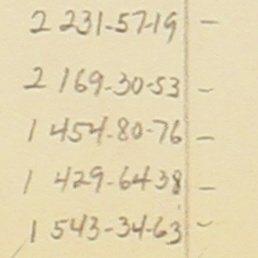 2 231-57-19 -
2 169-30-53 -
1 454-80-76 -
1 429-64-38 -
1 543-34-63 -